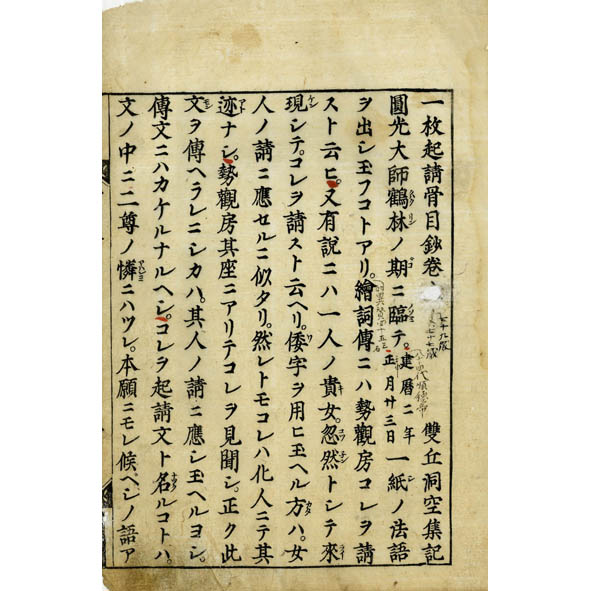 一枚起請骨目鈔卷 雙丘洞空集記
圓光大師鶴林ノ期ニ臨テ。建曆二年正月廿三日一紙ノ法語
ヲ出シ玉フコトアリ。繪詞傳ニハ勢觀房コレヲ請
スト云ヒ。又有說ニハ一人ノ貴女。忽然トシテ來
現シテ。コレヲ請スト云ヘリ。倭字ヲ用ヒ玉ヘル方ハ。女
人ノ請ニ應セルニ似タリ。然レトモコレハ化人ニテ其
迹ナシ。勢觀房其座ニアリテコレヲ見聞シ。正ク此
文ヲ傳ヘラレニシカハ。其人ノ請ニ應シ玉ヘルヨシ。
傳文ニハカケルナルヘシ。コレヲ起請文ト名ルコトハ。
文ノ中ニ二尊ノ憐ニハツレ。本願ニモレ候ヘシノ語ア